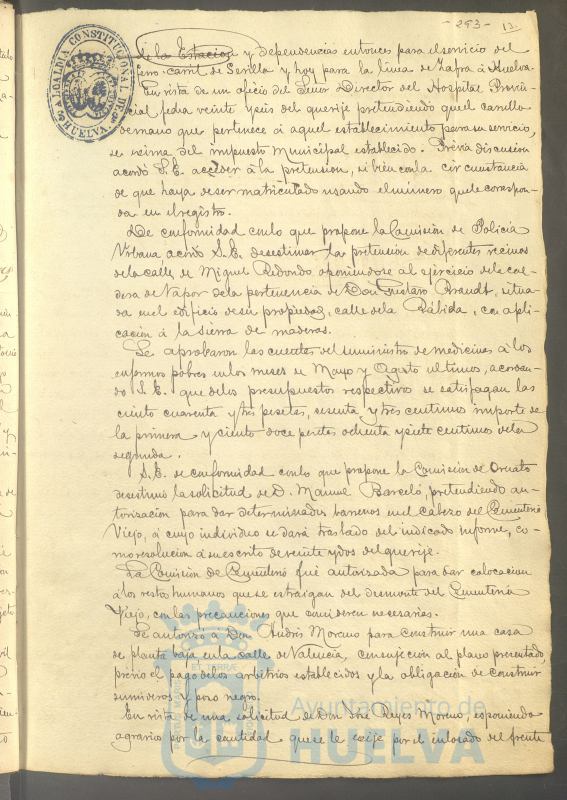 - 253 - 13.
ALCALDIA CONSTITUCIONAL DE HUELVA
de la Estacion y dependencias entonces para el servicio del
ferro-carril de Sevilla y hoy para la linea de Zafra á Huelva.
En vista de un oficio del Señor Director del Hospital Provin-
cial fecha veinte y seis del que rije pretendiendo que el carrillo
de mano que pertenece á aquel establecimiento para su servicio,
se exima del impuesto Municipal establecido. Prévia discusion
acordó S.E. acceder á la pretension, si bien con la circunstancia
de que haya de ser matriculado usando el número que le correspon-
da en el registro.
De conformidad con lo que propone la Comision de Policia
Urbana acordó S.E. desestimar la pretension de diferentes vecinos
de la calle de Miguel Redondo oponiendose al ejercicio de la cal-
dera de vapor de la pertenencia de Don Gustavo Brandt, situa-
da en el edificio de su propiedad, calle de la Rábida, con apli-
cacion á la sierra de maderas.
Se aprobaron las cuentas del suministro de medicinas á los
enfermos pobres en los meses de Mayo y Agosto ultimos, acordan-
do S.E. que de los presupuestos respectivos se satisfagan las
ciento cuarenta y tres pesetas, sesenta y tres centimos importe de
la primera y ciento doce pesetas ochenta y siete centimos de la
segunda.
S.E. de conformidad con lo que propone la Comision de Ornato
desestimó la solicitud de D. Manuel Barceló, pretendiendo au-
torizacion para dar determinados barrenos en el cabezo del Cementerio
Viejo, á cuyo individuo se dará traslado del indicado informe, co-
mo resolucion á su escrito de veinte y dos del que rije.
La Comision de Cementerio fué autorizada para dar colocacion
á los restos humanos que se extraigan del desmonte del Cementerio
Viejo, con las precauciones que consideren necesarias.
Se autorizó á Don Andrés Moreno para construir una casa
de planta baja en la calle de Valencia, con sujecion al plano presentado,
prévio el pago de los arbitrios establecidos y la obligacion de construir
sumideros y pozo negro.
En vista de una solicitud de Don José Reyes Moreno, esponiendo
agravios por la cantidad que se le exije por el enlosado del frente
Ayuntamiento de
HUELVA